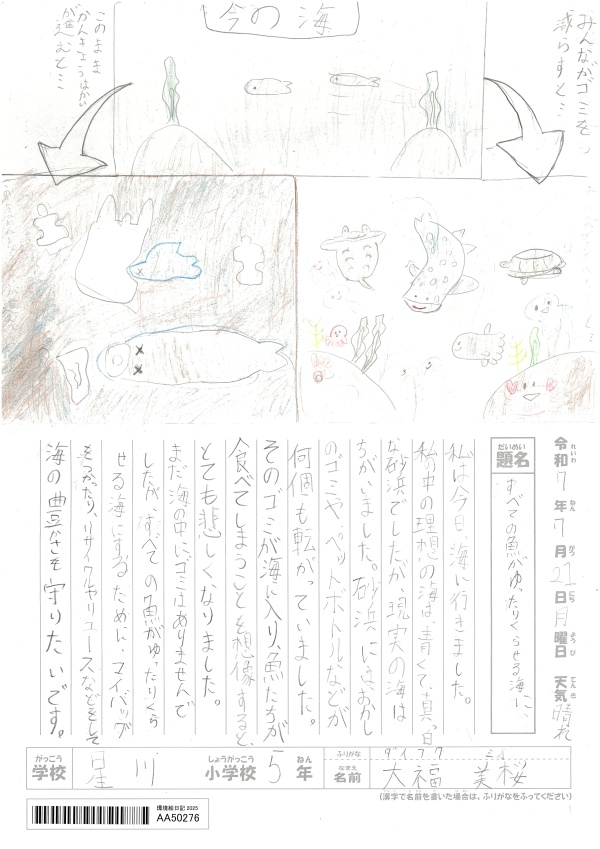 今の海
みんながゴミを
減らすと…
このまま
かんきょうはかいが
進むと…
令和7年7月21日月曜日 天気 晴れ
れいわ ねん がつ にち ようび てんき
だいめい
題名
すべての魚がゆったりくらせる海に、
私は今日、海に行きました。
私の中の理想の海は、青くて、真っ白
な砂浜でしたが、現実の海は
ちがいました。砂浜には、おかし
のゴミや、ペットボトルなどが
何個も転がっていました。
そのゴミが海に入り、魚たちが
食べてしまうことを想像すると、
とても悲しく、なりました。
まだ海の中に、ゴミはありませんで
したが、すべての魚がゆったりくら
せる海にするために、マイバッグ
をつかったり、リサイクルやリュースなどをして
海の豊かさを守りたいです。
がっこう
学校
星川
しょうがっこう
小学校
5
ねん
年
ふりがな
ダイフク ミオ
なまえ
名前
大福 美桜
(漢字で名前を書いた場合は、ふりがなをふってください)
環境絵日記 2025
AA50276